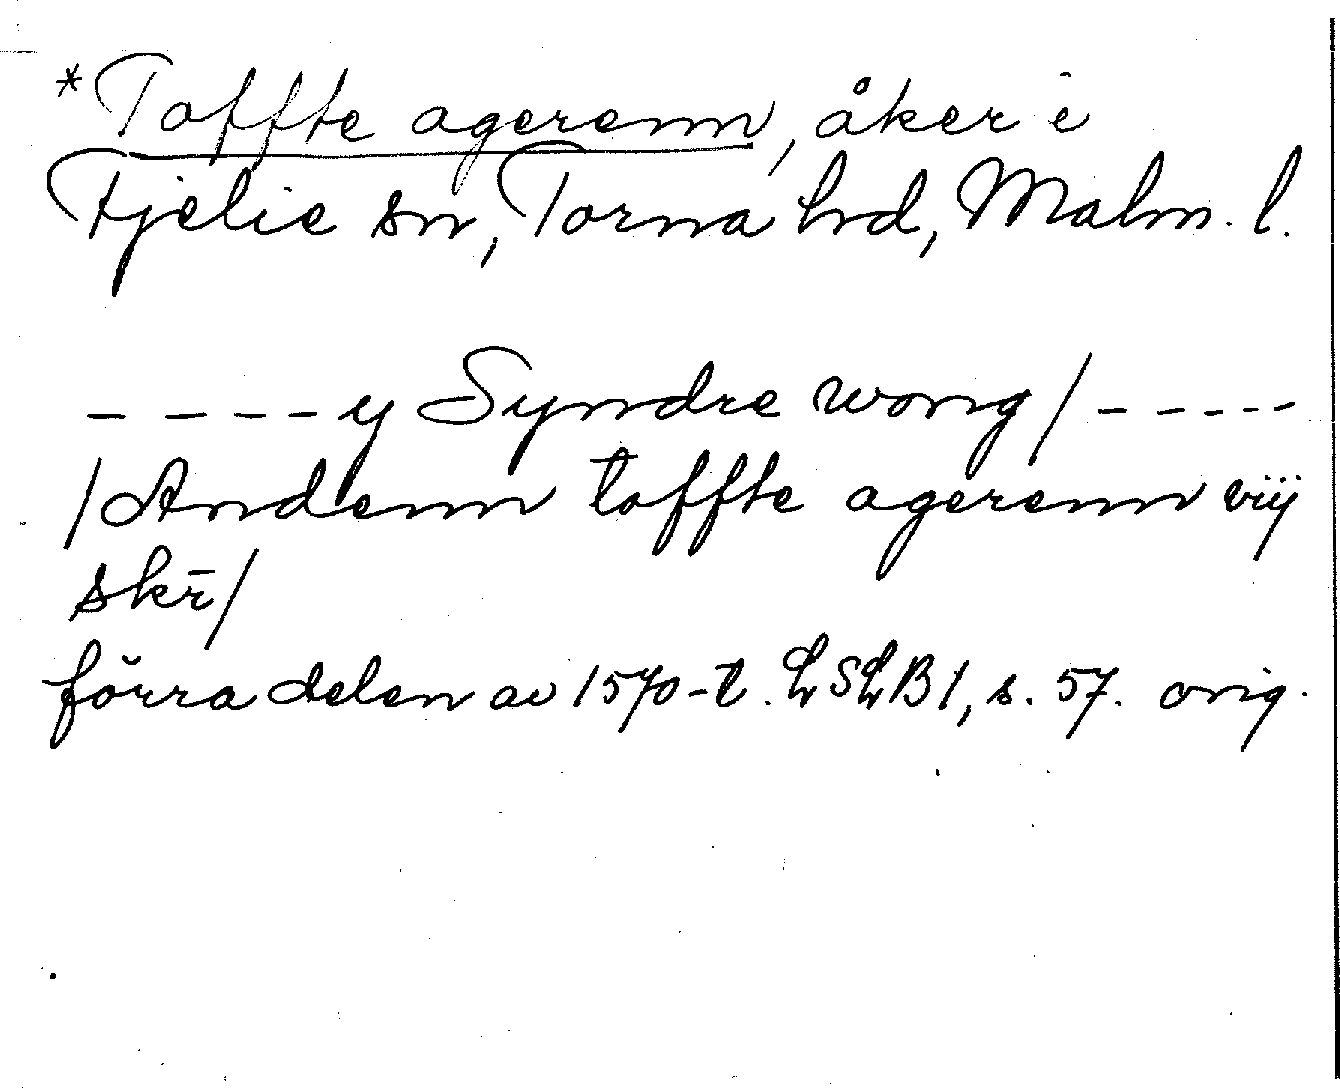 *Toffte agerenn, åker i
Fjelie sn, Torna hd, Malm. l.
– – – – y Syndre wong / – – – – –
/ Andenn toffte agerenn viij
skr̄ /
förra delen av 1570-t. LSLB1, s. 57. orig.